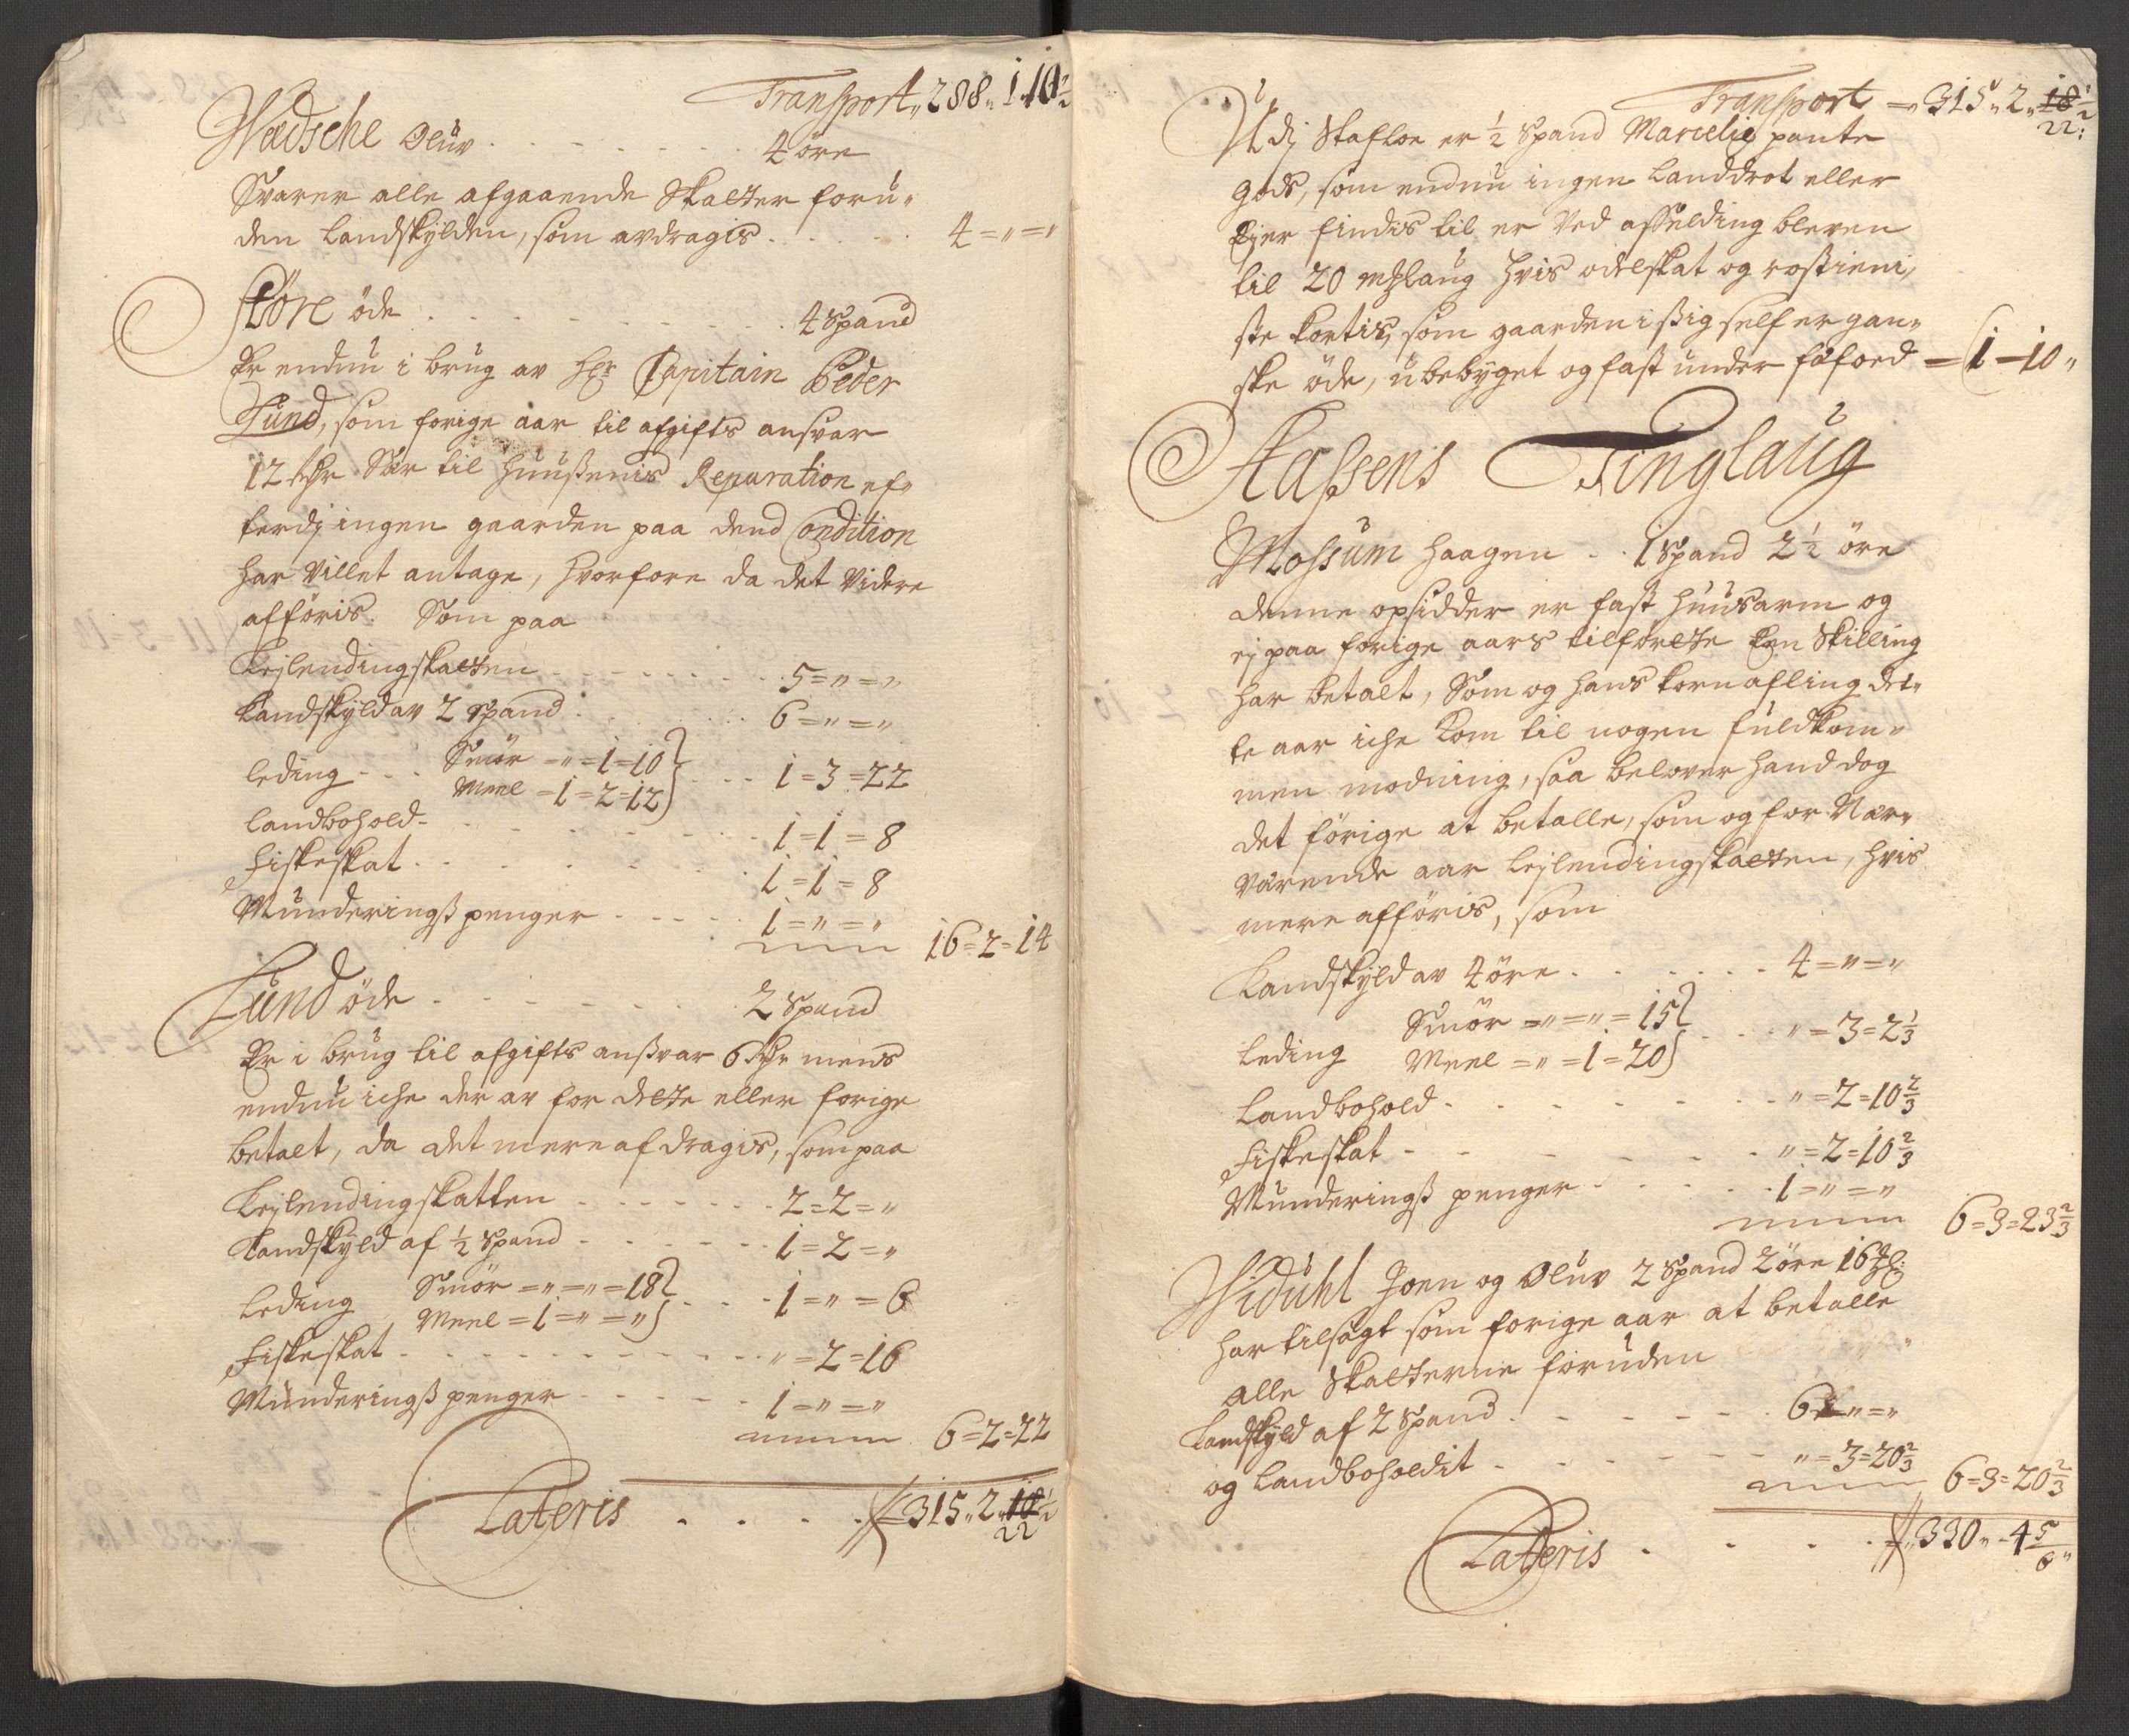 Transport „ 288 „ 1 „ 10 ½
Wædsche Oluv . . . . . . . 4 öre
Svarer alle afgaaende Skatter foru-
den Landskylden, som avdragis . . . . . 4 = „ = „
Störe öde . . . . . . . . . . 4 Spand
Er endnu i brug av Hr Capitain Peder
Lund, som forige aar til afgifts ansvar
12 rdr Sær til huußenis Reparation ef-
terdj ingen gaarden paa dend Condition
har villet antage, hvorfore da det videre
afföris. Som paa
Lejlendingskatten . . . . . . . 5 = „ = „
Landskyld av 2 Spand . . . . . . 6 = „ = „
leding . . . Smör = „ = 1 = 10
Meel = 1 = 2 = 12 . . . 1 = 3 = 22
landbohold . . . . . . . . 1 = 1 = 8
Fiskeskat . . . . . . . . 1 = 1 = 8
Munderingß penger . . . . . 1 = „ = „
16 = 2 = 14
Lund öde . . . . . . . 2 Spand
Er i brug til afgifts ansvar 6 rdr mens
endnu iche der av for dette eller forige
betalt, da det mere afdragis, som paa
Lejlendingskatten . . . . . . . 2 = 2 = „
Landskyld af ½ Spand . . . . . . 1 = 2 = „
leding Smör = „ = „ = 18
Meel = 1 = „ = „ . . . 1 = „ = 6
Fiskeskat . . . . . . . . . . „ = 2 = 16
Munderingß penger . . . . . 1 = „ = „
6 = 2 = 22
Lateris . . . . 315 „ 2 „ 18 ½
22
Transport = 315 „ 2 „ 18 ½
22 :
Udj Stafloe er ½ Spand Marcelis pante
gods, som endnu ingen Landdrot eller
Ejer findis til er ved affelding bleven
til 20 mßlaug hvis odelskat og roßtieni,
ste kortis, som gaarden i sig self er gan-
ske öde, ubebyget og fast under föefoed = 1 = 10 „
Aassens Tinglaug
Mossum Haagen . . 1 Spand 2 ½ öre
denne opsidder er fast huusarm og
ej paa forige aars tilförelse Een Skilling
har betalt, Som og hans kornafling det-
te aar iche kom til nogen fuldkom-
men modning, saa belover hand dog
det förige at betalle, som og for Nær-
værende aar lejlendingskatten, hvis
mere afföris, som
Landskyld av 4 öre . . . . . . 4 = „ = „
leding Smör = „ = „ = 15
Meel = „ = 1 = 20 . . . „ = 3 = 2 ⅓
Landbohold . . . . . . . . „ = 2 = 10 ⅔
Fiskeskat . . . . . . . „ = 2 = 10 ⅔
Munderingß penger . . . . . 1 = „ = „
6 = 3 = 23 ⅔
Widuhl Joen og Oluv 2 Spand 2 öre 16
har tilsagt som forige aar at betalle
alle Skatterne foruden
Landskyld af 2 Spand . . . . . . 6 = „ = „
og Landboholdit . . . . . . „ = 3 = 20 ⅔
6 = 3 = 20 ⅔
Lateris . . . . 330 „ - 4 5/6 „